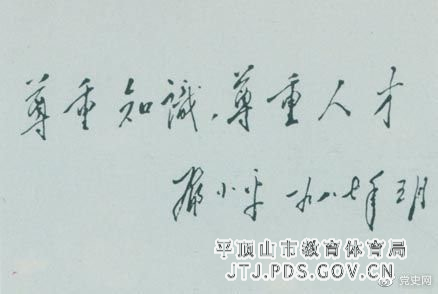 尊重知識，尊重人才
鄧小平 一九八七年五月
平顶山市教育体育局
JTJ.PDS.GOV.CN
党史网